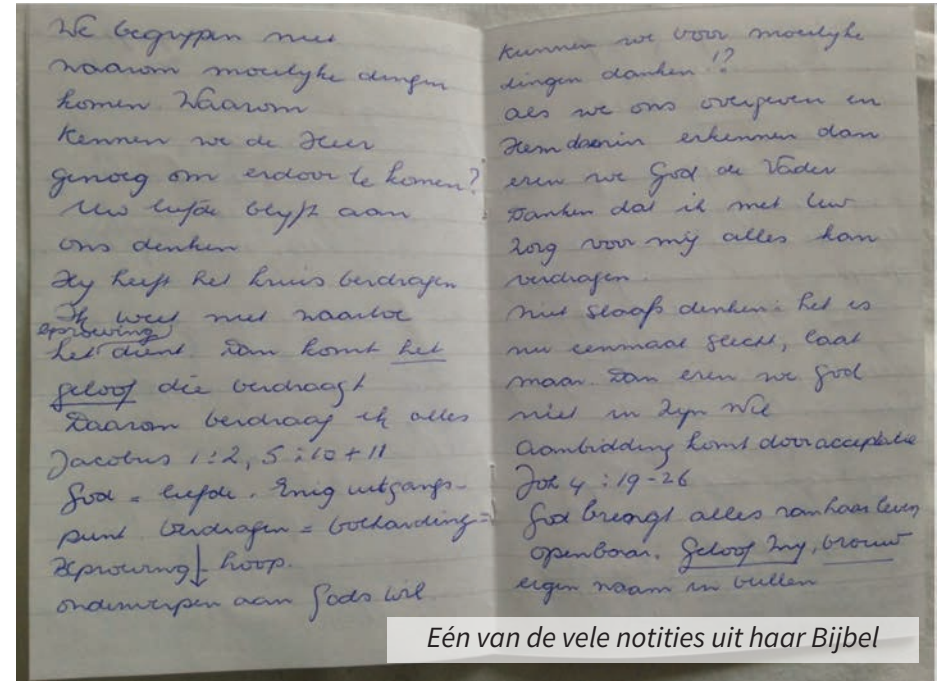 We begrijpen niet
waarom moeilijke dingen
komen. Waarom
Kennen we de Heer
genoeg om erdoor te komen?
Uw liefde blijft aan
ons denken
Hij heeft het kruis verdragen
Ik weet niet waartoe
beproeving
het dient. Dan komt het
geloof die verdraagt
Daarom verdraag ik alles
Jacobus 1:2, 5:10+11
God = liefde. Enig uitgangs-
punt. Verdragen = volharding =
Beproeving ↓ hoop.
onderwerpen aan Gods wil
Kunnen we voor moeilijke
dingen danken!?
als we ons overgeven en
Hem daarin erkennen dan
eren we God de Vader
Danken dat ik met Uw
zorg voor mij alles kan
verdragen.
niet slaafs denken: het is
nu eenmaal slecht, laat
maar. Dan eren we God
niet in Zijn Wil
Aanbidding komt door acceptatie
Joh 4:19-26
God brengt alles van haar leven
openbaar. Geloof Mij, vrouw
eigen naam invullen
Eén van de vele notities uit haar Bijbel